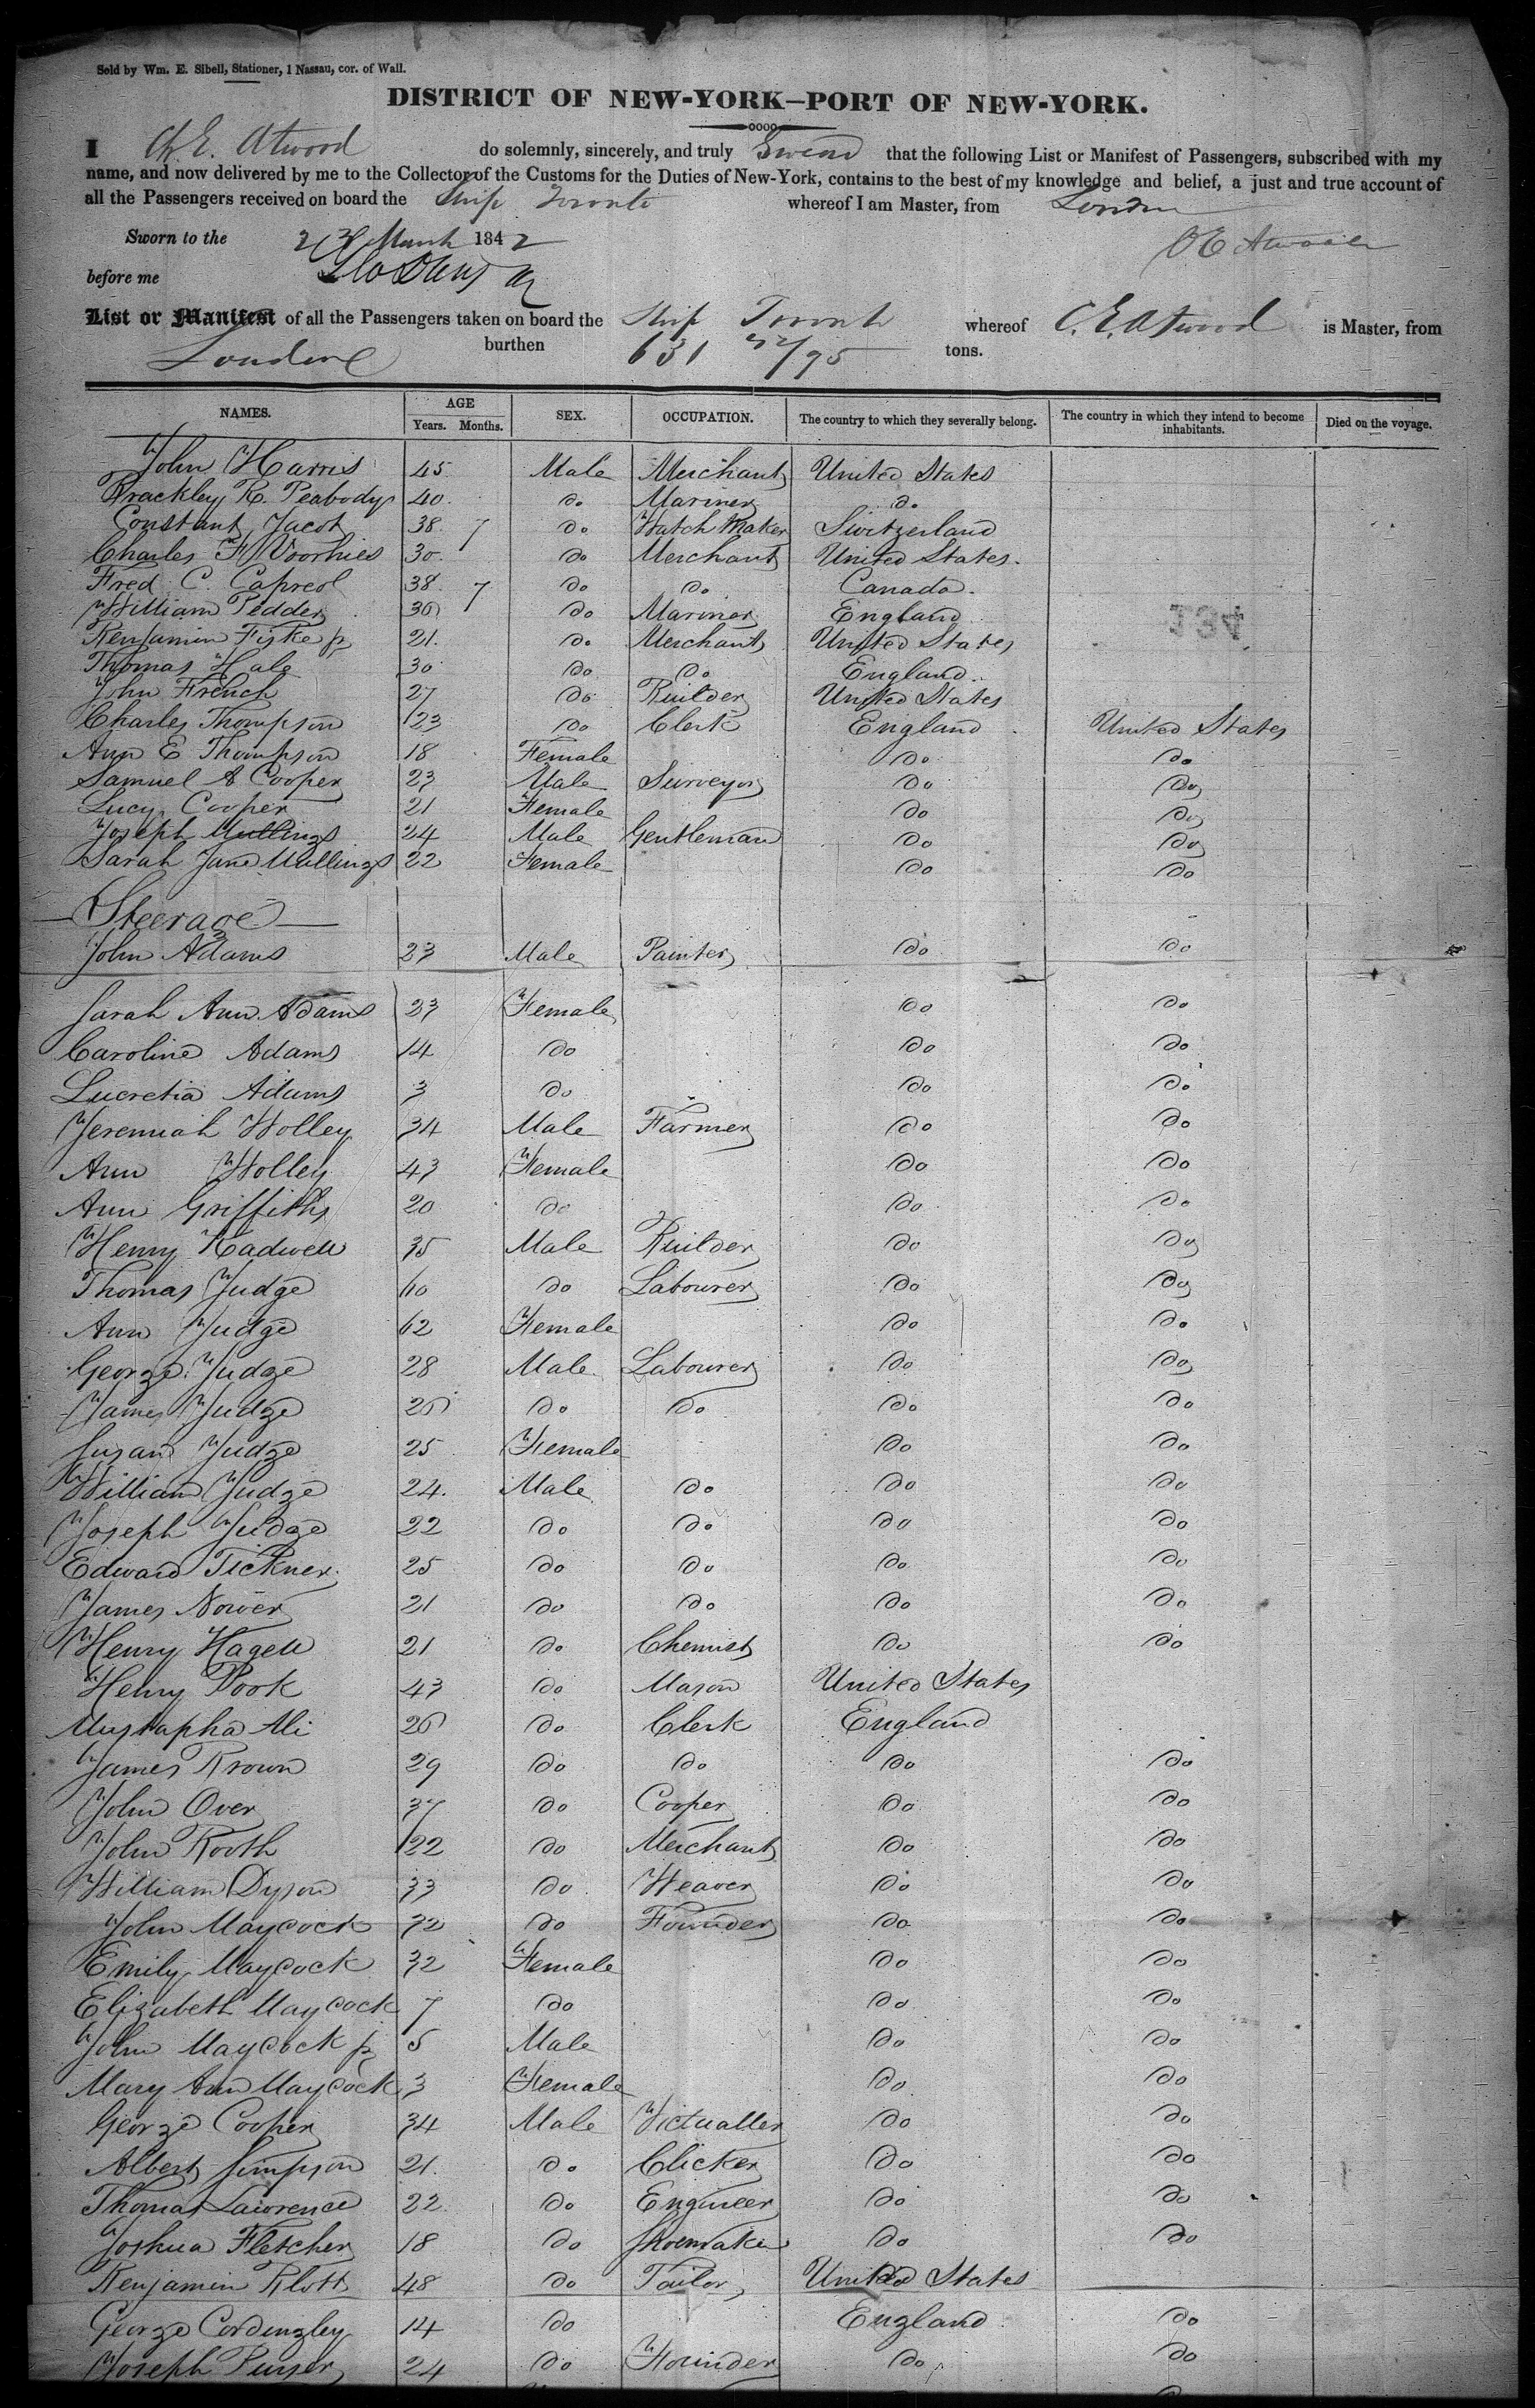 Sold by Wm. E. Sibell, Stationer, 1 Nassau, cor. of Wall.
DISTRICT OF NEW-YORK—PORT OF NEW-YORK.
I E. Atwood do solemnly, sincerely, and truly Swear that the following List or Manifest of Passengers, subscribed with my
name, and now delivered by me to the Collector of the Customs for the Duties of New-York, contains to the best of my knowledge and belief, a just and true account of
all the Passengers received on board the Ship Toronto whereof I am Master, from London
Sworn to the 23 March 1842 E Atwood
before me
List or Manifest of all the Passengers taken on board the Ship Toronto whereof C. E. Atwood is Master, from
London burthen 631 52/95 tons.
NAMES. AGE Years. Months. SEX. OCCUPATION. The country to which they severally belong. The country in which they intend to become inhabitants. Died on the voyage.
John Harris 45 Male Merchant United States
Brackley R. Peabody 40 do Mariner do
Constant Jacot 38 7 do Watch Maker Switzerland
Charles F Voorhies 30 do Merchant United States
Fred C. Capreol 38 7 do do Canada
William Pedder 30 do Mariner England
134
Benjamin Fiske jr 21 do Merchant United States
Thomas Hale 30 do do England
John French 27 do Builder United States
Charles Thompson 23 do Clerk England United States
Ann E Thompson 18 Female do do
Samuel A Cooper 23 Male Surveyor do do
Lucy Cooper 21 Female do do
Joseph Mullings 24 Male Gentleman do do
Sarah Jane Mullings 22 Female do do
Steerage
John Adams 23 Male Painter do do
Sarah Ann Adams 23 Female do do
Caroline Adams 14 do do do
Lucretia Adams 3 do do do
Jeremiah Wolley 34 Male Farmer do do
Ann Wolley 43 Female do do
Ann Griffiths 20 do do do
Henry Kadwell 35 Male Builder do do
Thomas Judge 60 do Labourer do do
Ann Judge 62 Female do do
George Judge 28 Male Labourer do do
James Judge 26 do do do do
Susan Judge 25 Female do do
William Judge 24 Male do do do
Joseph Judge 22 do do do do
Edward Tickner 25 do do do do
James Nower 21 do do do do
Henry Hagell 21 do Chemist do do
Henry Pook 43 do Mason United States
Mustapha Ali 26 do Clerk England
James Brown 29 do do do do
John Over 37 do Cooper do do
John Booth 22 do Merchant do do
William Dyson 33 do Weaver do do
John Maycock 32 do Founder do do
Emily Maycock 32 Female do do
Elizabeth Maycock 7 do do do
John Maycock jr 5 Male do do
Mary Ann Maycock 3 Female do do
George Cooper 34 Male Victualler do do
Albert Simpson 21 do Clicker do do
Thomas Lawrence 22 do Engineer do do
Joshua Fletcher 18 do Shoemaker do do
Benjamin Blott 48 do Tailor United States
George Cordingley 14 do England do
Joseph Purser 24 do Founder do do